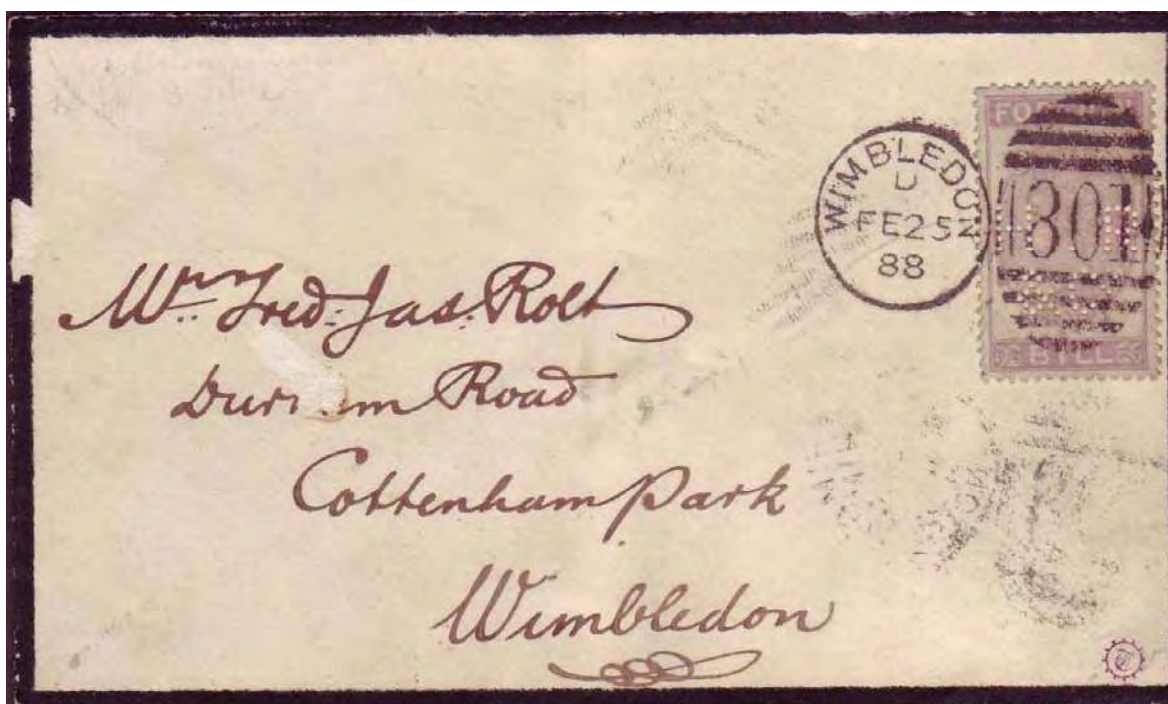 WIMBLEDON
D
FE25
88
FOREIGN
301
BILL
Mr. Fred: Jas: Rolt
Road
Cottenham Park
Wimbledon